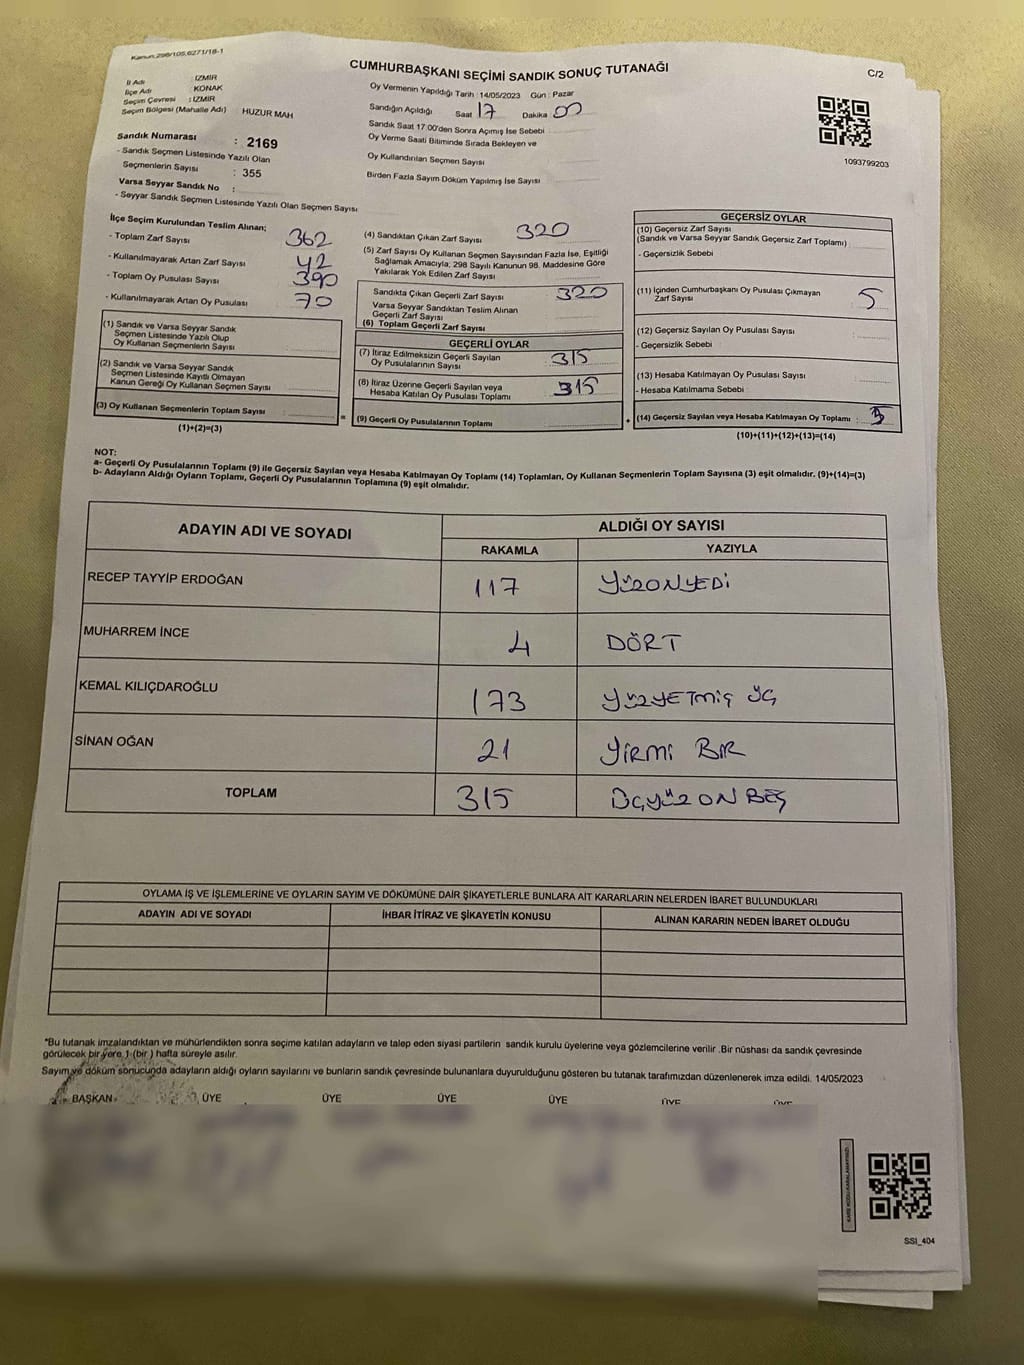 Kanun:298/105,6271/18-1
CUMHURBAŞKANI SEÇİMİ SANDIK SONUÇ TUTANAĞI
C/2
İl Adı : İZMİR
İlçe Adı : KONAK
Seçim Çevresi : İZMİR
Seçim Bölgesi (Mahalle Adı) HUZUR MAH
Oy Vermenin Yapıldığı Tarih :14/05/2023 Gün : Pazar
Sandığın Açıldığı Saat 17 Dakika 00
Sandık Saat 17:00'den Sonra Açımış İse Sebebi
Oy Verme Saati Bitiminde Sırada Bekleyen ve
Oy Kullandırılan Seçmen Sayısı
Birden Fazla Sayım Döküm Yapılmış İse Sayısı
1093799203
Sandık Numarası : 2169
- Sandık Seçmen Listesinde Yazılı Olan
Seçmenlerin Sayısı : 355
Varsa Seyyar Sandık No :
- Seyyar Sandık Seçmen Listesinde Yazılı Olan Seçmen Sayısı
İlçe Seçim Kurulundan Teslim Alınan;
- Toplam Zarf Sayısı 362
- Kullanılmayarak Artan Zarf Sayısı 42
- Toplam Oy Pusulası Sayısı 390
- Kullanılmayarak Artan Oy Pusulası 70
(1) Sandık ve Varsa Seyyar Sandık
Seçmen Listesinde Yazılı Olup
Oy Kullanan Seçmenlerin Sayısı
(2) Sandık ve Varsa Seyyar Sandık
Seçmen Listesinde Kayıtlı Olmayan
Kanun Gereği Oy Kullanan Seçmen Sayısı
(3) Oy Kullanan Seçmenlerin Toplam Sayısı
(1)+(2)=(3)
=
(4) Sandıktan Çıkan Zarf Sayısı 320
(5) Zarf Sayısı Oy Kullanan Seçmen Sayısından Fazla İse, Eşitliği
Sağlamak Amacıyla, 298 Sayılı Kanunun 98. Maddesine Göre
Yakılarak Yok Edilen Zarf Sayısı
Sandıkta Çıkan Geçerli Zarf Sayısı 320
Varsa Seyyar Sandıktan Teslim Alınan
Geçerli Zarf Sayısı
(6) Toplam Geçerli Zarf Sayısı
GEÇERLİ OYLAR
(7) İtiraz Edilmeksizin Geçerli Sayılan
Oy Pusulalarının Sayısı 315
(8) İtiraz Üzerine Geçerli Sayılan veya
Hesaba Katılan Oy Pusulası Toplamı 315
(9) Geçerli Oy Pusulalarının Toplamı
+
GEÇERSİZ OYLAR
(10) Geçersiz Zarf Sayısı
(Sandık ve Varsa Seyyar Sandık Geçersiz Zarf Toplamı)
- Geçersizlik Sebebi
(11) İçinden Cumhurbaşkanı Oy Pusulası Çıkmayan
Zarf Sayısı 5
(12) Geçersiz Sayılan Oy Pusulası Sayısı
- Geçersizlik Sebebi
(13) Hesaba Katılmayan Oy Pusulası Sayısı
- Hesaba Katılmama Sebebi
(14) Geçersiz Sayılan veya Hesaba Katılmayan Oy Toplamı :
(10)+(11)+(12)+(13)=(14)
NOT:
a- Geçerli Oy Pusulalarının Toplamı (9) ile Geçersiz Sayılan veya Hesaba Katılmayan Oy Toplamı (14) Toplamları, Oy Kullanan Seçmenlerin Toplam Sayısına (3) eşit olmalıdır. (9)+(14)=(3)
b- Adayların Aldığı Oyların Toplamı, Geçerli Oy Pusulalarının Toplamına (9) eşit olmalıdır.
ADAYIN ADI VE SOYADI ALDIĞI OY SAYISI
RAKAMLA YAZIYLA
RECEP TAYYİP ERDOĞAN 117 YÜZONYEDİ
MUHARREM İNCE 4 DÖRT
KEMAL KILIÇDAROĞLU 173 YÜZYETMİŞ ÜÇ
SİNAN OĞAN 21 YİRMİ BİR
TOPLAM 315 ÜÇYÜZ ON BEŞ
OYLAMA İŞ VE İŞLEMLERİNE VE OYLARIN SAYIM VE DÖKÜMÜNE DAİR ŞİKAYETLERLE BUNLARA AİT KARARLARIN NELERDEN İBARET BULUNDUKLARI
ADAYIN ADI VE SOYADI İHBAR İTİRAZ VE ŞİKAYETİN KONUSU ALINAN KARARIN NEDEN İBARET OLDUĞU
*Bu tutanak imzalandıktan ve mühürlendikten sonra seçime katılan adayların ve talep eden siyasi partilerin sandık kurulu üyelerine veya gözlemcilerine verilir .Bir nüshası da sandık çevresinde
görülecek bir yere 1 (bir ) hafta süreyle asılır.
Sayım ve döküm sonucunda adayların aldığı oyların sayılarını ve bunların sandık çevresinde bulunanlara duyurulduğunu gösteren bu tutanak tarafımızdan düzenlenerek imza edildi. 14/05/2023
BAŞKAN ÜYE ÜYE ÜYE ÜYE ÜYE ÜYE
SSI_404